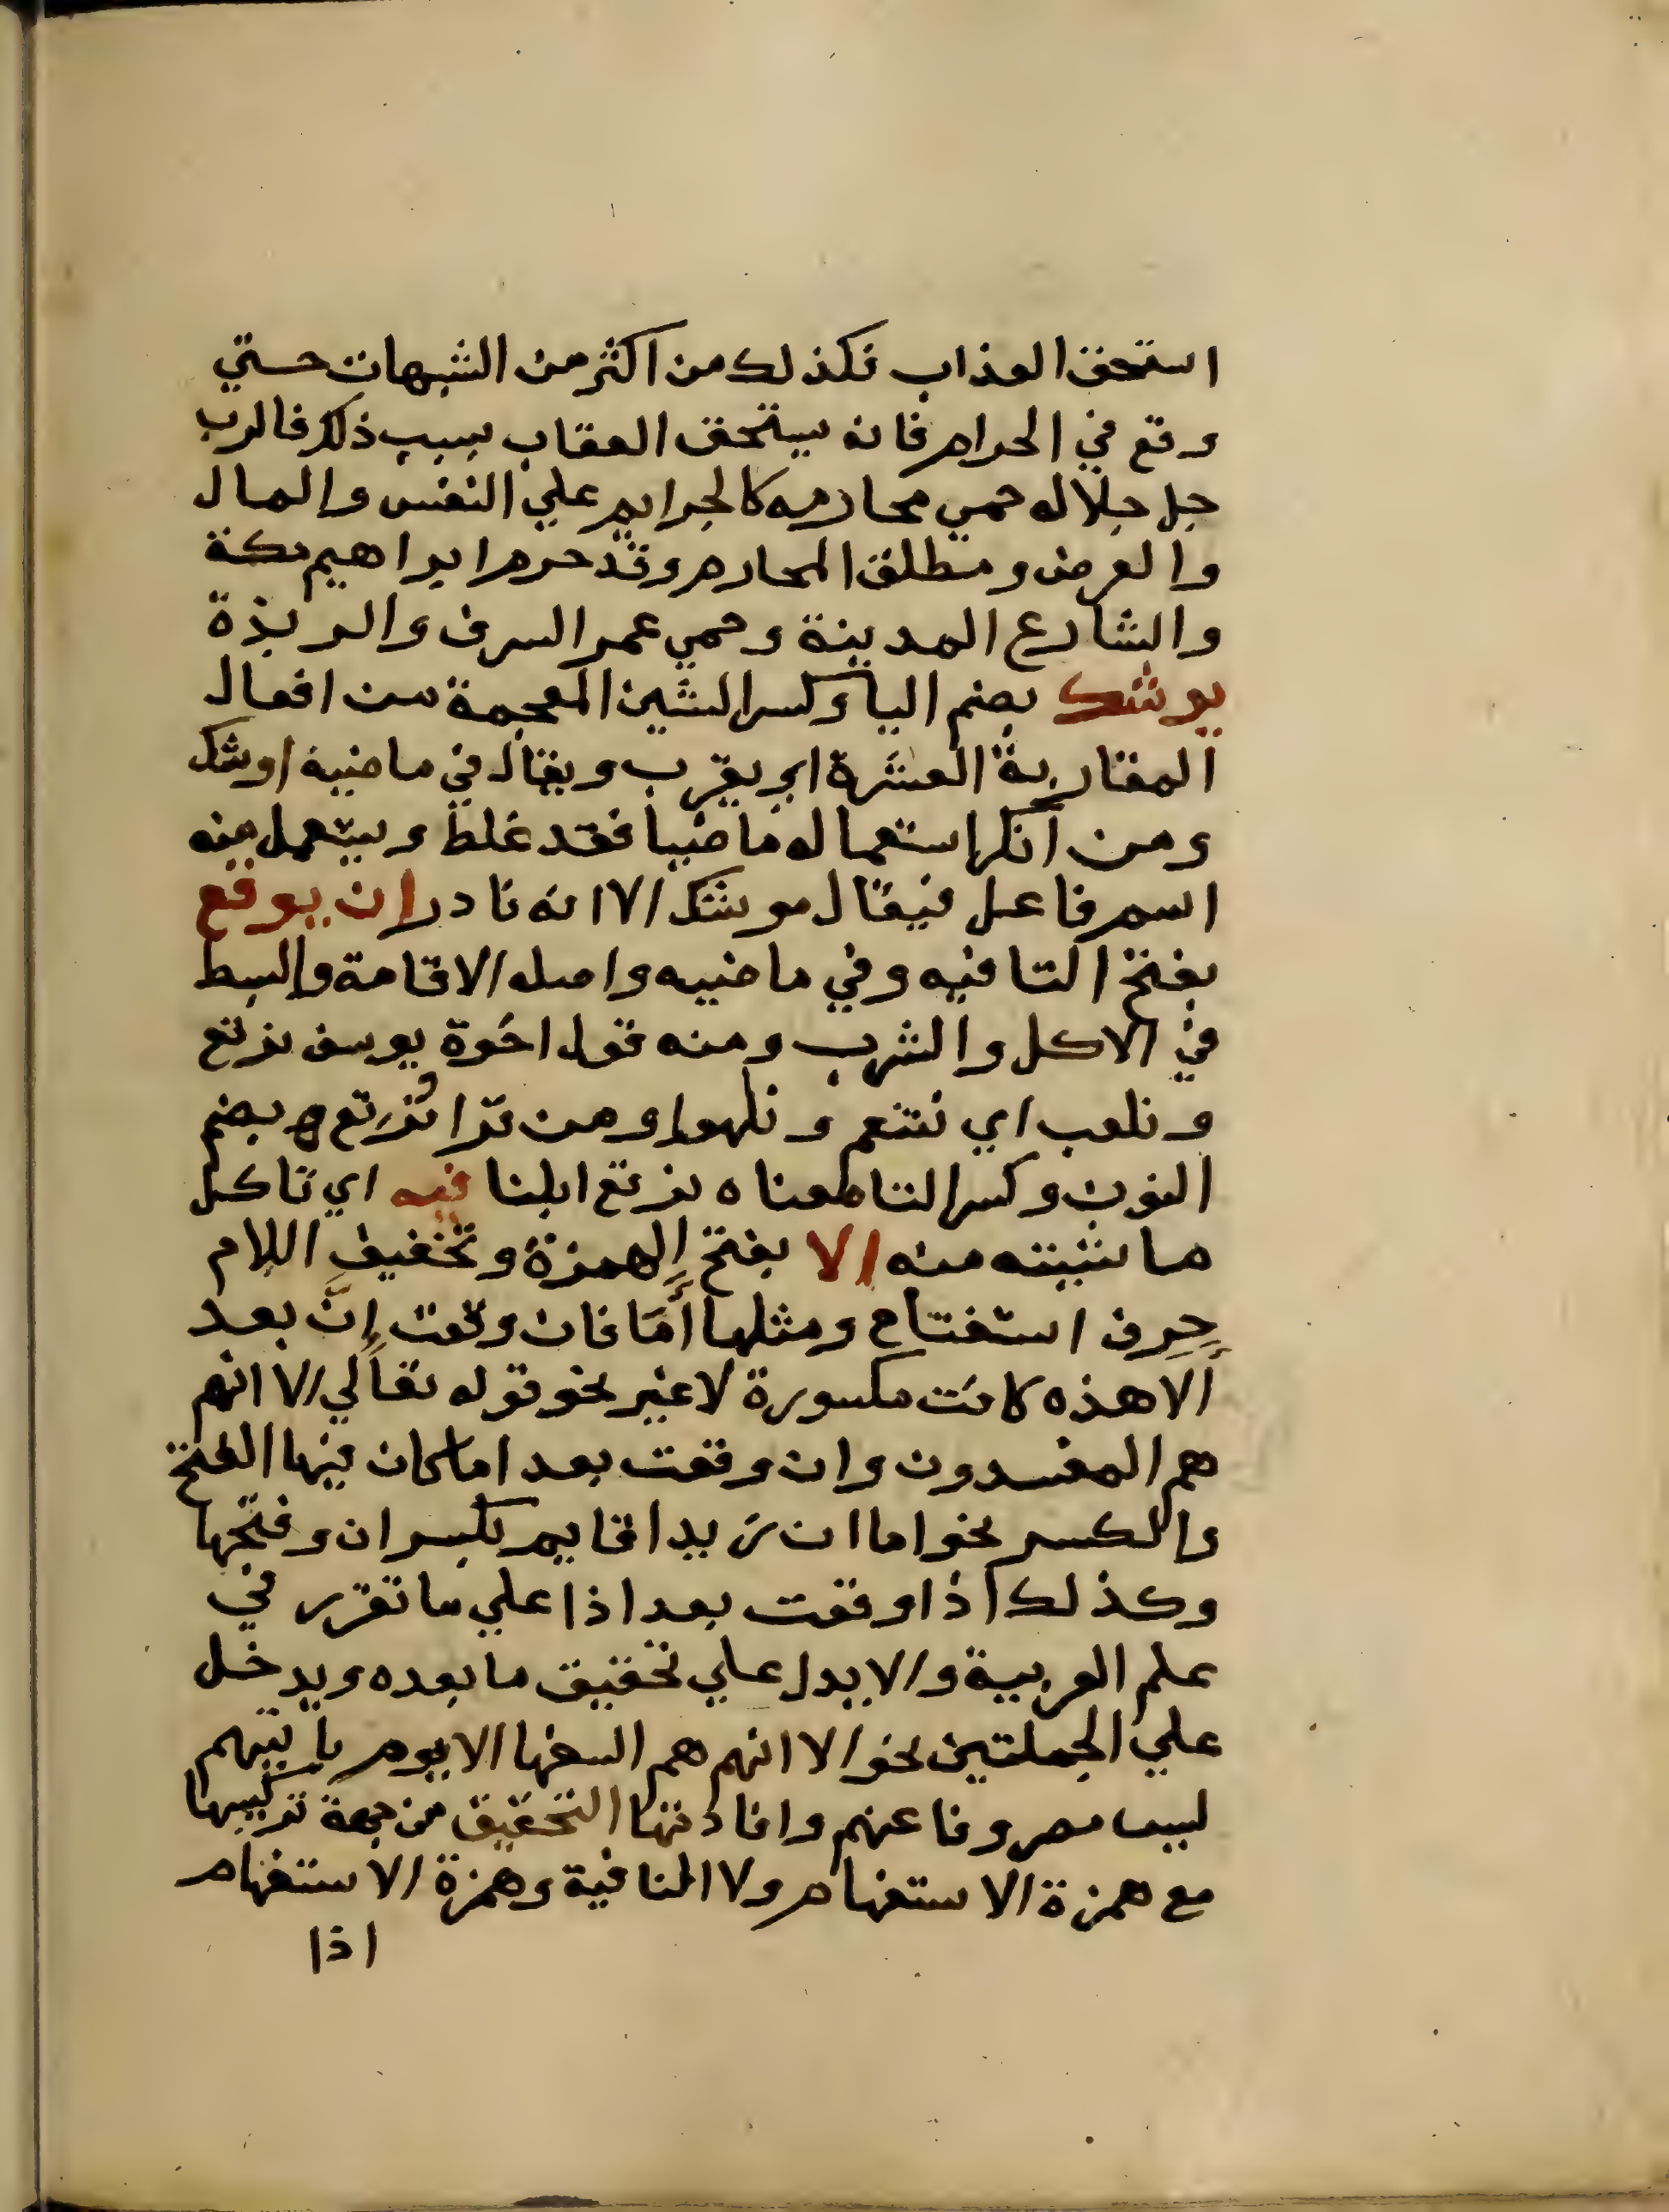 استحق العذاب فكذلك من اكثر من الشبهات حتي
وقع في الحرام فانه يستحق العقاب بسبب ذلك فالرب
جل جلاله حمي محارمه كالجرايم علي النفس والمال
والعرض ومطلق المحارم وقد حرم ابراهيم مكة
والشارع المدينة وحمي عمر السرف والربذة
يوشك بضم اليا وكسر الشين المعجمة من افعال
المقاربة العشرة اي يقرب ويقال في ماضيه اوشك
ومن انكر استعماله ماضيا فقد غلط ويستعمل منه
اسم فاعل فيقال موشك الا انه نادر ان يوقع
بفتح التا فيه وفي ماضيه واصله الاقامة والبسط
في الاكل والشرب ومنه قول اخوة يوسف نرتع
ونلعب اي نتنعم ونلهوا ومن قرا نُرتع بضم
النون وكسر التا معناه نرتع ابلنا فيه اي تاكل
ما تنبته منه الا بفتح الهمزة وتخفيف اللام
حرف استفتاح ومثلها أمَا فان وقعت إنّ بعد
ألا هذه كانت مكسورة لا غير نحو قوله تعالي الا انهم
هم المفسدون وان وقعت بعد اما كان فيها الفتح
والكسر نحو اما ان زيدا قايم بكسر ان وفتحها
وكذلك اذا وقعت بعد اذا علي ما تقرر في
علم العربية والا يدل علي تحقيق ما بعده ويدخل
علي الجملتين نحو الا انهم هم السفها الا يوم ياتيهم
ليس مصروفا عنهم وافادتها التحقيق من جهة تركيبها
مع همزة الاستفهام ولا النافية وهمزة الاستفهام
اذا